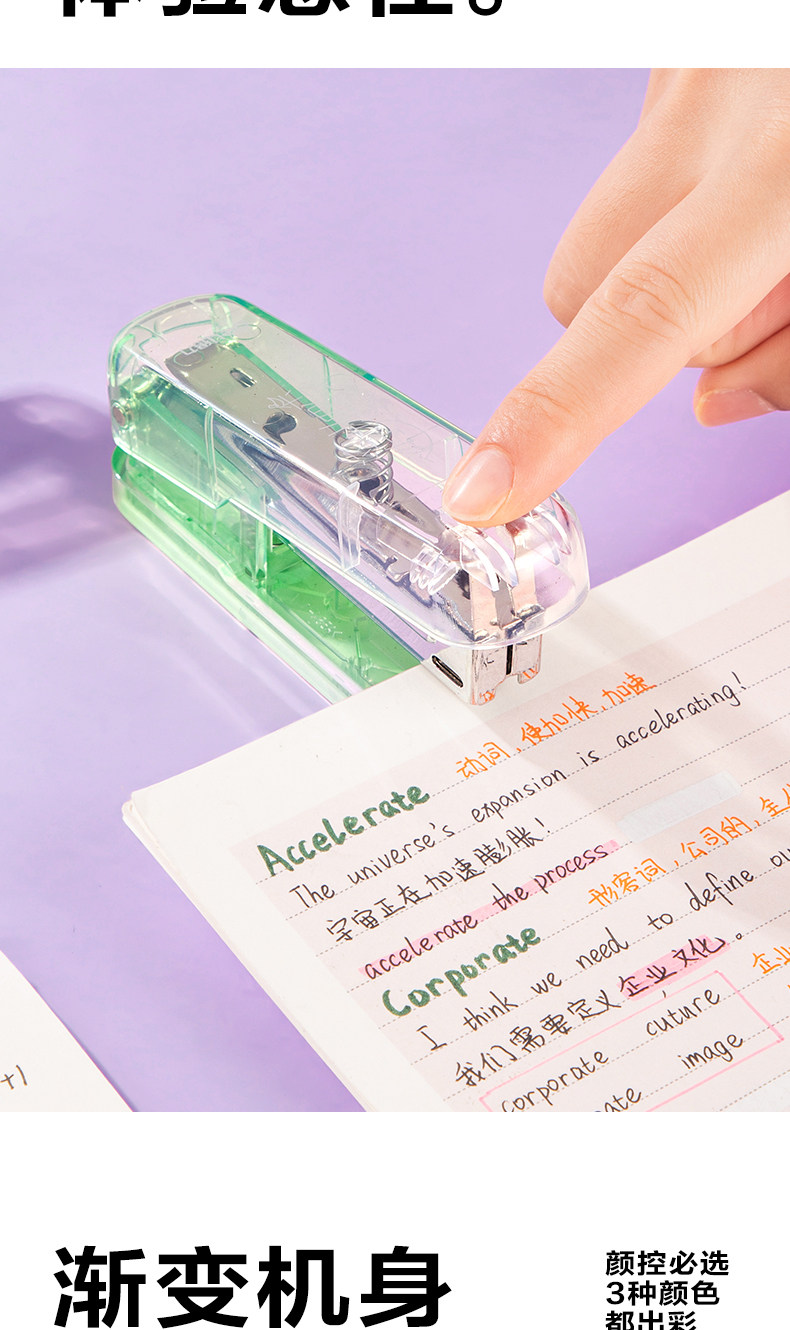 体验感佳。
动词，使加快，加速
Accelerate
The universe's expansion is accelerating!
宇宙正在加速膨胀！
accelerate the process
形容词，公司的，全
Corporate
I think we need to define ou
我们需要定义企业文化。
企业
corporate cuture
ate image
+1
渐变机身
颜控必选
3种颜色
都出彩